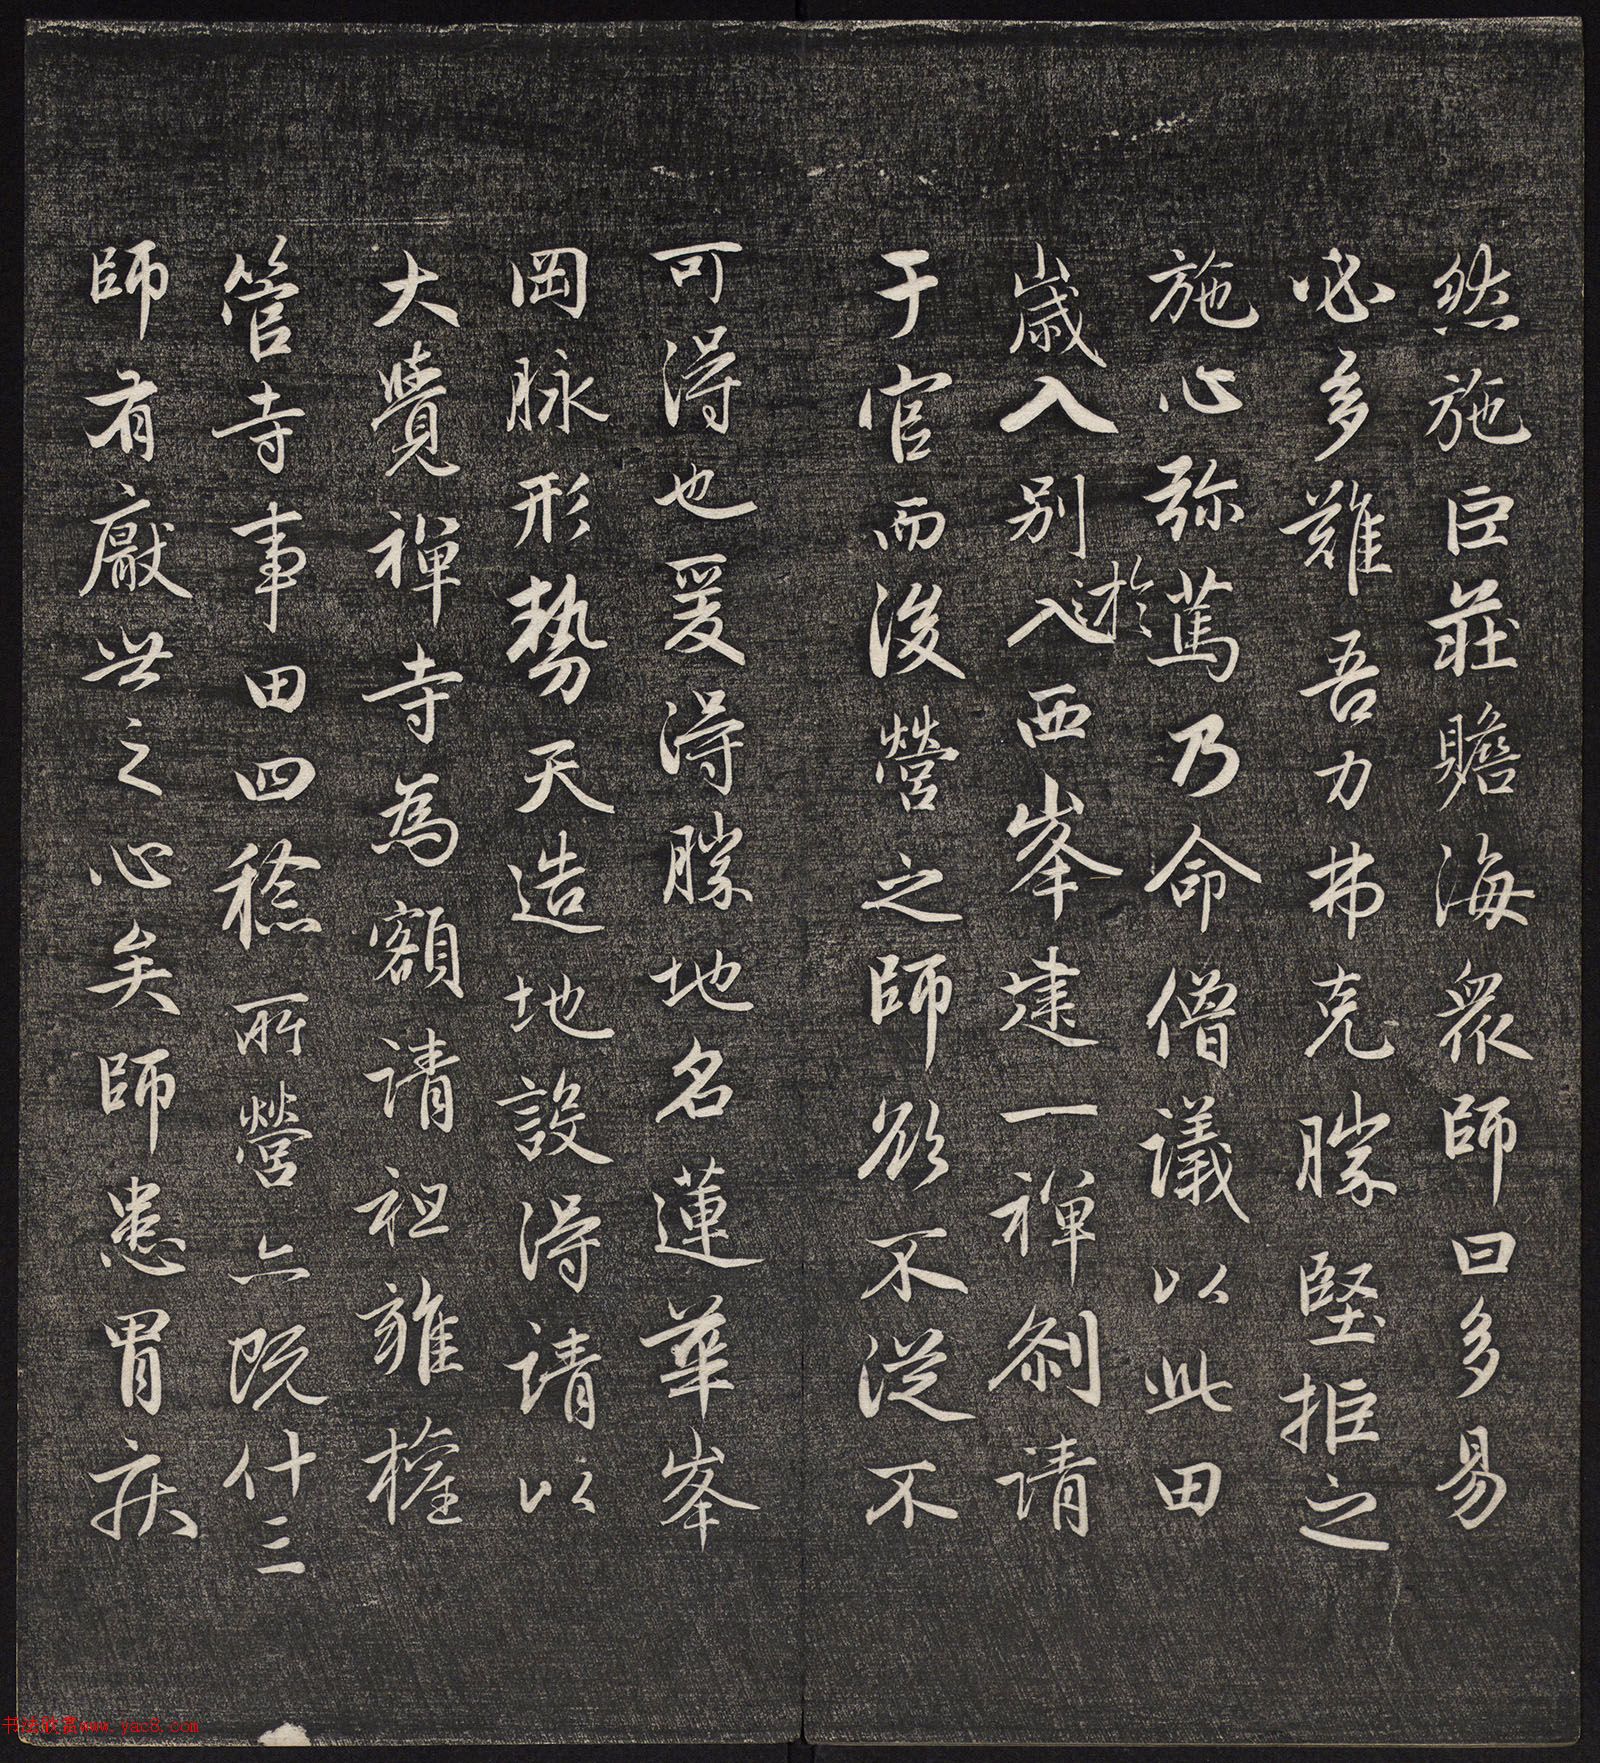 然施臣莊贍海眾師曰多易
必多難吾力弗克勝堅拒之
施心弥篤乃命僧議以此田
歲入別入於西峯建一禪剎請
于官而後營之師欲不從不
可得也爰得勝地名蓮華峯
岡脉形勢天造地設得請以
大覺禪寺為額請祖雍權
管寺事田四稔所營亦既什三
師有厭世之心矣師患胃疾
书法欣赏www.yac8.com